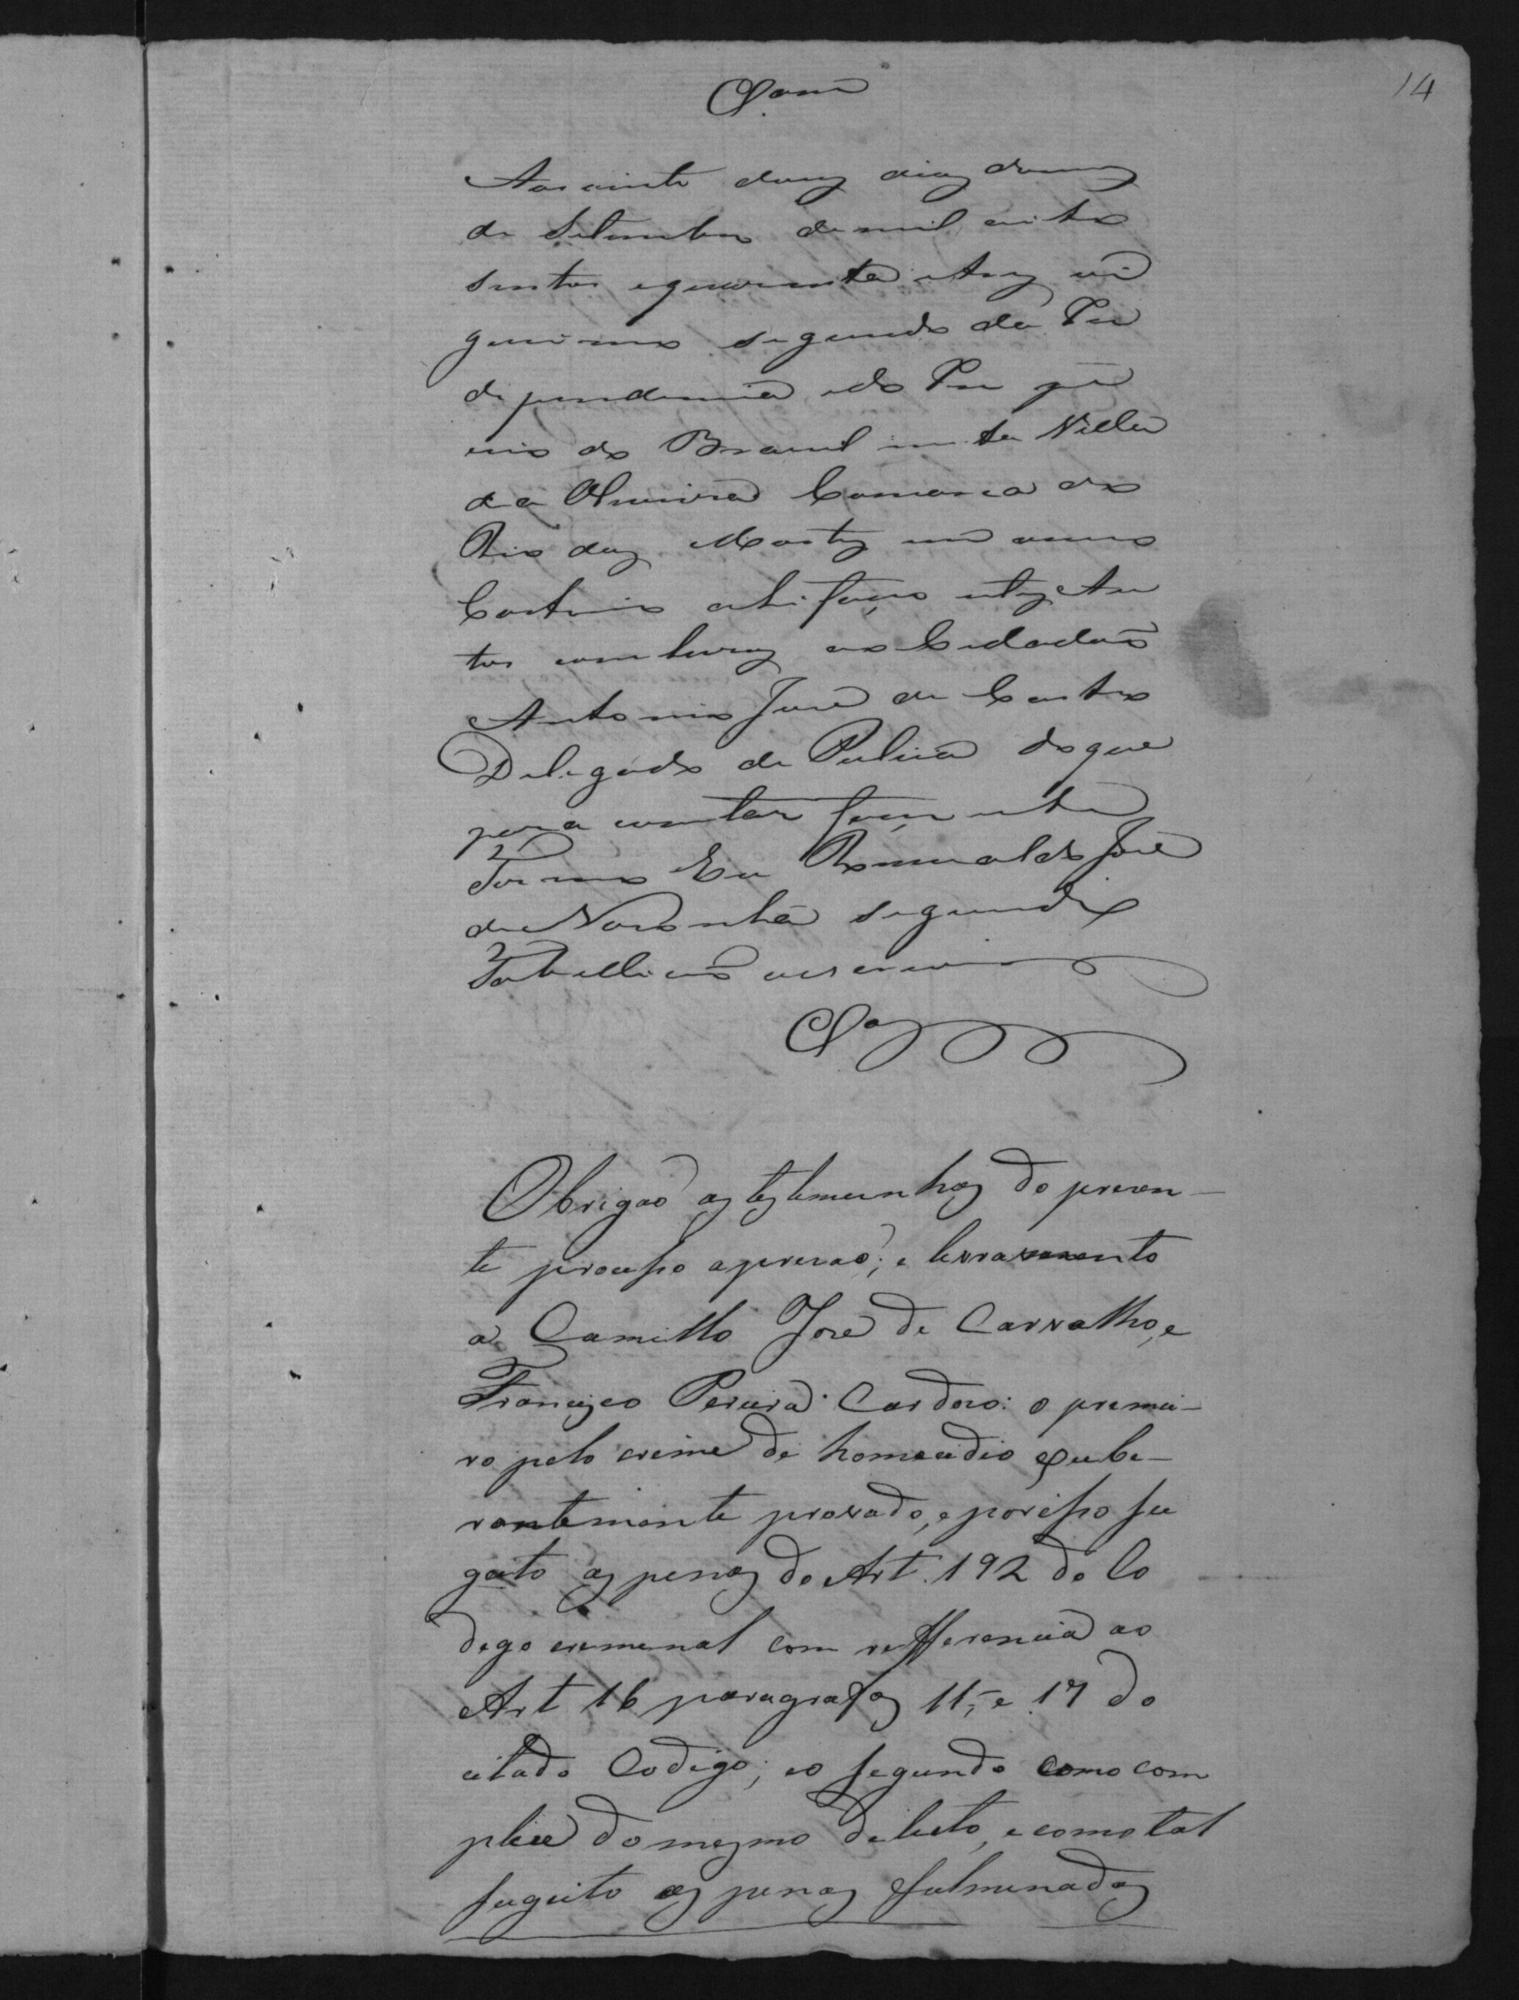 14
Aos vinte dous dias do mes
de Setembro de mil oito
sentos e quarenta e tres vi
gesimo segundo da In
dependencia e do Im pe
rio do Brazil nesta Villa
da Oliveira Comarca do
Rio das Mortes em meu
Cartorio ahi faço estes Au
tos concluzos ao Cidadão
Antonio José de Castro
Delegado de Policia do que
para constar faço este
Termo Eu Romualdo José
de Noronha segundo
Tabellião escrevi
Obrigaõ as testemunhas do prezen-
te processo a prezaõ, e levramento
a Camillo José de Carvalho, e
Francisco Pereira Cardozo: o premei-
ro pelo crime de homecidio exube-
rantemente provado, e por isso su
geito as penas do Art. 192 do Co
dego cremenal com refferencia ao
Art 16 paragrafos 11, e 17 do
citado Codigo; e o segundo como com
plice do mesmo delicto, e como tal
sugeito as penas fulmenadas